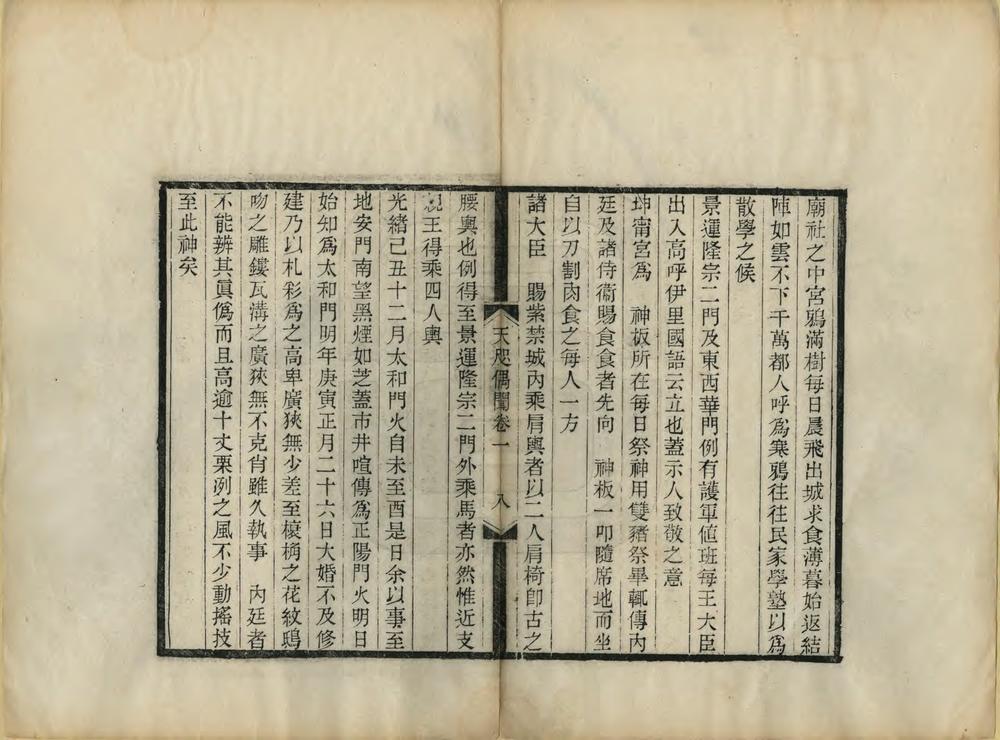 廟社之中宮鴉滿樹每日晨飛出城求食薄暮始返結
陣如雲不下千萬都人呼爲寒鴉往往民家學塾以爲
散學之候
景運隆宗二門及東西華門例有護軍値班每王大臣
出入高呼伊里國語云立也蓋示人致敬之意
坤甯宮爲　神板所在每日祭神用雙豬祭畢輒傳內
廷及諸侍衞賜食食者先向　神板一叩隨席地而坐
自以刀割肉食之每人一方
諸大臣　賜紫禁城內乘肩輿者以二人肩椅卽古之
天咫偶聞卷一　八
腰輿也例得至景運隆宗二門外乘馬者亦然惟近支
親王得乘四人輿
光緖己丑十二月太和門火自未至酉是日余以事至
地安門南望黑煙如芝蓋市井喧傳爲正陽門火明日
始知爲太和門明年庚寅正月二十六日大婚不及修
建乃以札彩爲之高卑廣狹無少差至榱桷之花紋鴟
吻之雕鏤瓦溝之廣狹無不克肖雖久執事　內廷者
不能辨其眞僞而且高逾十丈栗冽之風不少動搖技
至此神矣